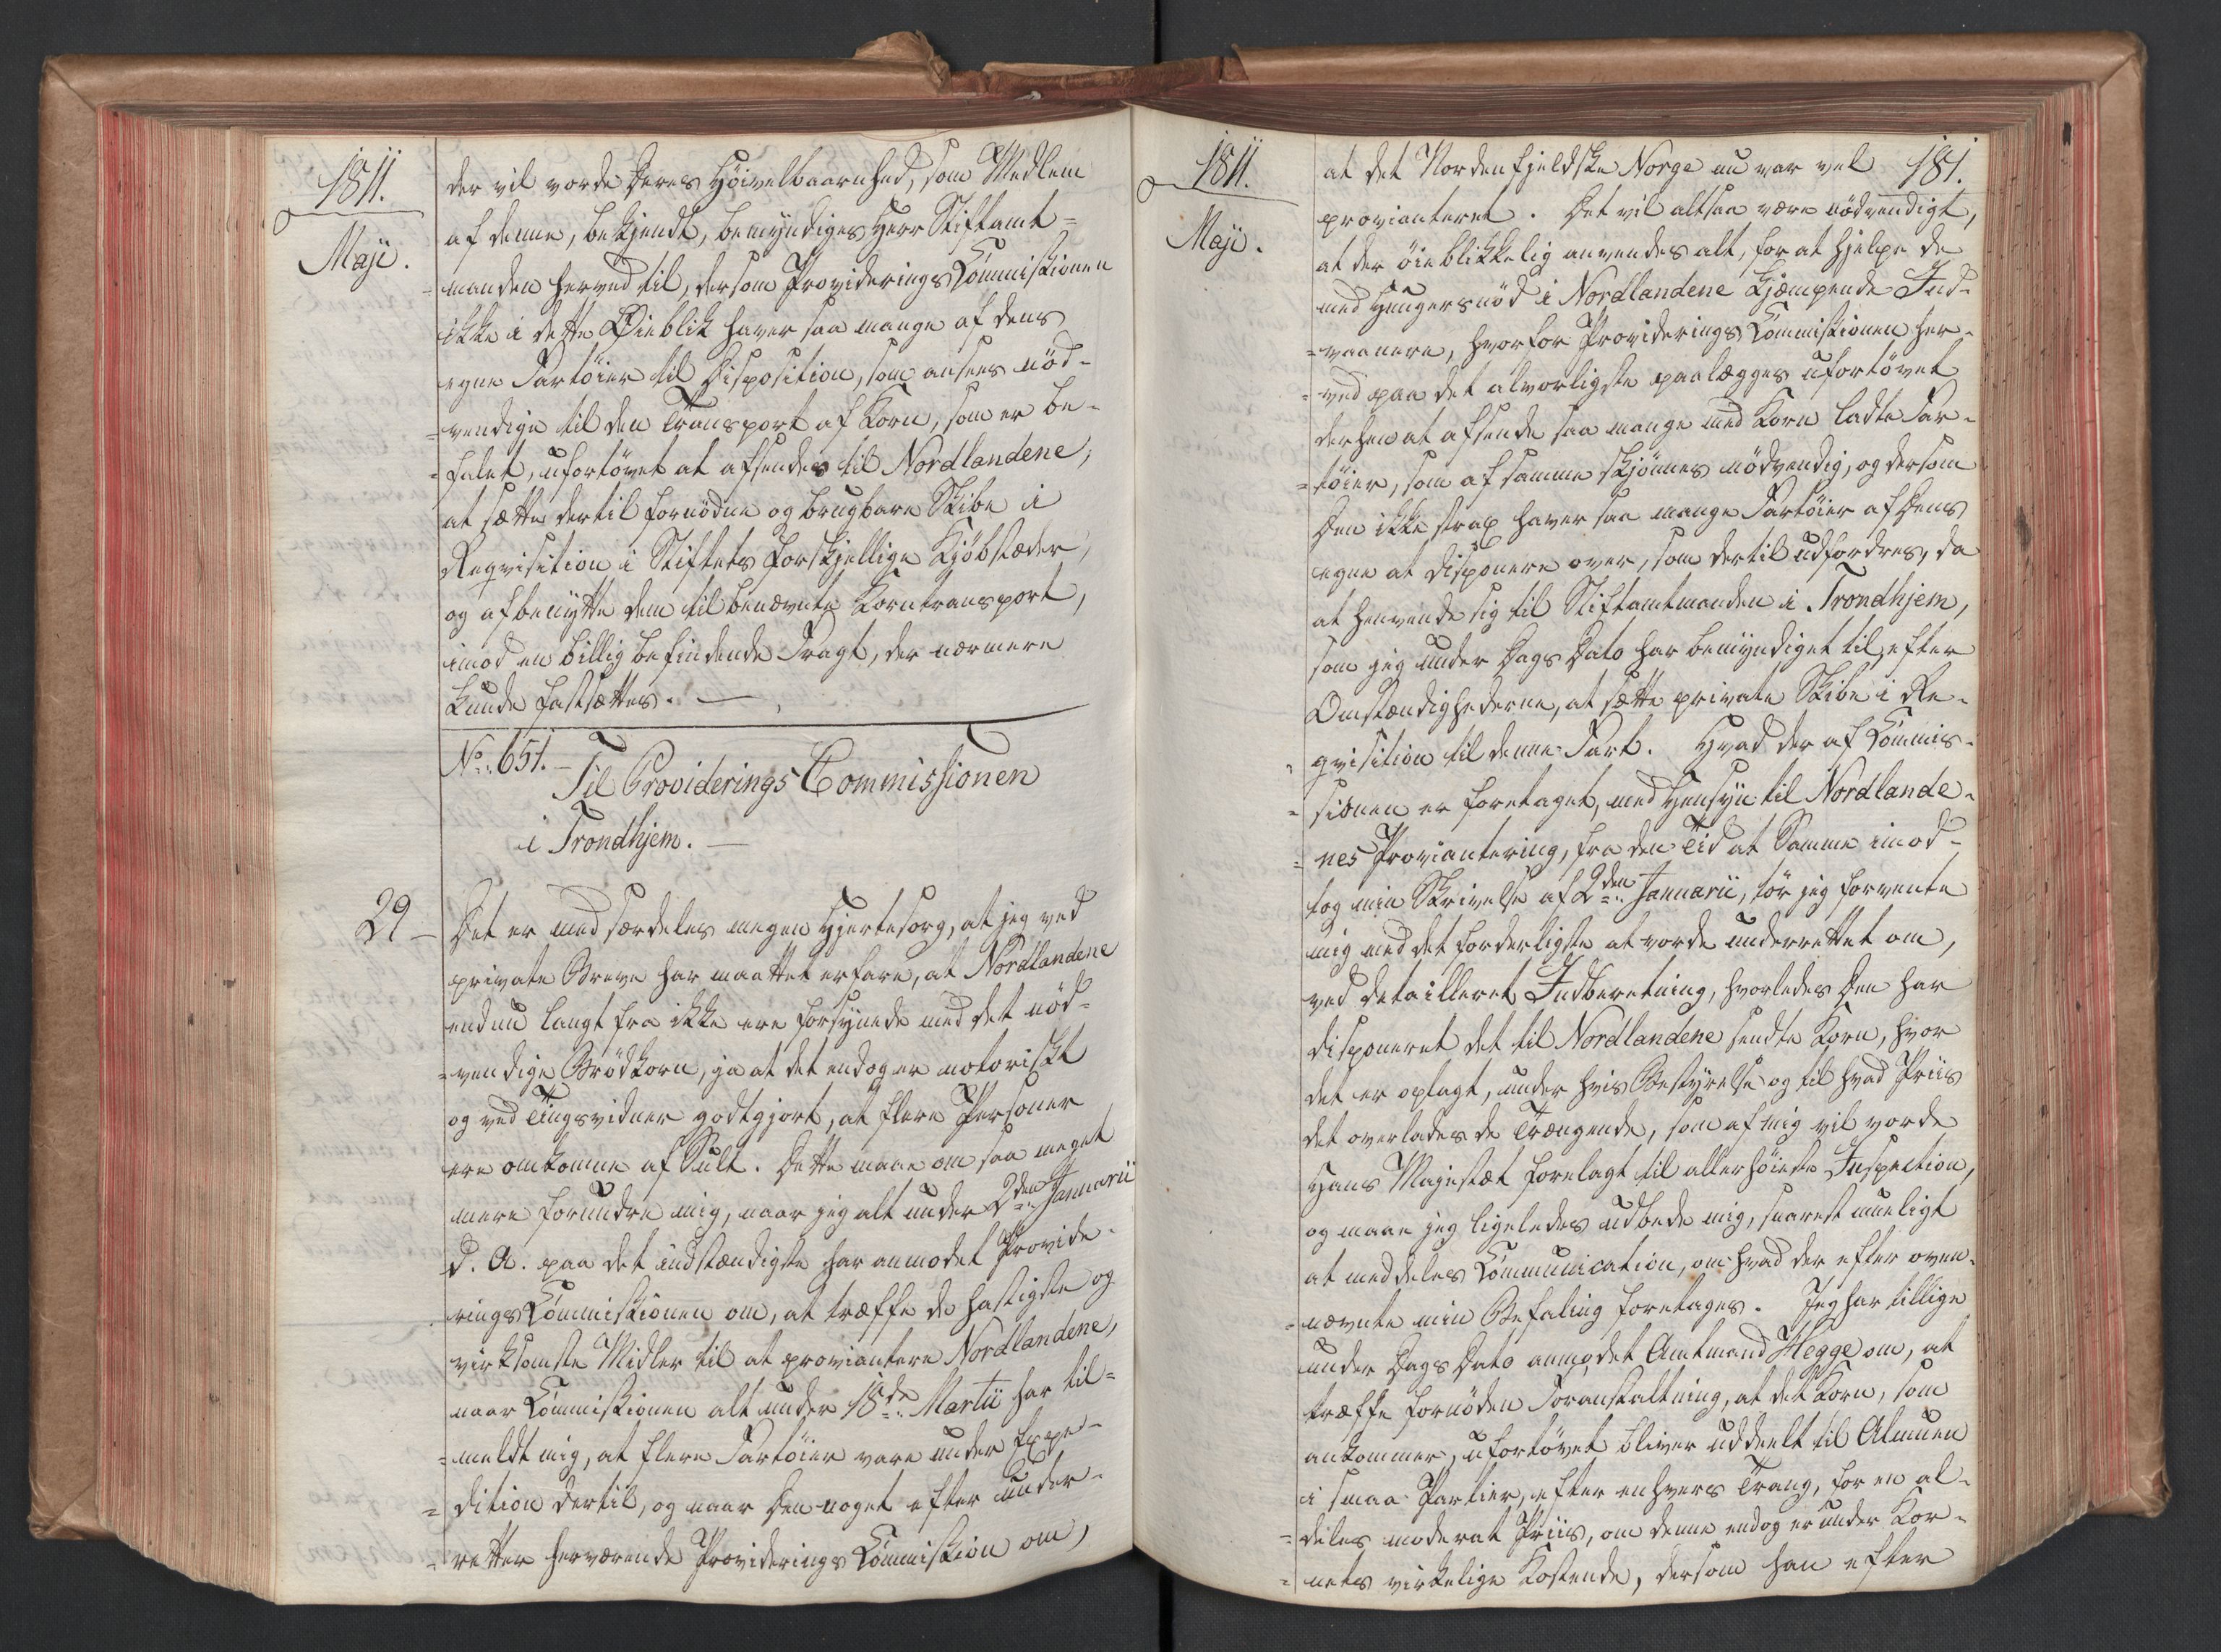 1811.
Maji.
der vil vorde Deres Høivelbaarnhed, som Medlem
af denne, bekjendt, bemyndiges Herr Stiftamt=
=manden herved til, dersom Providerings Commissionen
ikke i dette Øieblik haver saa mange af dens
egne Fartøier til Disposition, som ansees nød-
=vendige til den Transport af Korn, som er be-
=falet, ufortøvet at afsendes til Nordlandene,
at sætte dertil fornødne og brugbare Skibe i
Reqvisition i Stiftets forskjellige Kjøbstæder,
og afbenytte dem til benævnte Korntransport,
imod en billig befindende Fragt, der nærmere
kunde fastsættes. —
No. 651. —
Til Providerings Commissionen
i Trondhjem. —
29 —
Det er med særdeles megen Hjertesorg, at jeg ved
private Breve har maattet erfare, at Nordlandene
endnu langt fra ikke ere forsynede med det nød-
=vendige Brødkorn, ja at det endog er notoriskt
og ved Tingsvidner godtgjort, at flere Personer
ere omkomne af Sult. Dette maae om saa meget
mere forundre mig, naar jeg alt under 2den Januarii
d. A. paa det indstændigste har anmodet Provide-
rings Commissionen om, at træffe de hastigste og
virksomste Midler til at proviantere Nordlandene,
naar Commissionen alt under 18de Martii har til=
=meldt mig, at flere Fartøier vare under Expe-
=dition dertil, og naar Den noget efter under-
=retter herværende Providerings Commission om,
1811.
Maji.
181.
at det Nordenfjeldske Norge nu var vel
provianteret. Det vil altsaa være nødvendigt,
at der øieblikkelig anvendes alt, for at hjelpe de
med Hungersnød i Nordlandene kjæmpende Ind-
=vaanere, hvorfor Providerings Commissionen her-
=ved paa det alvorligste paalægges ufortøvet
derhen at afsende saa mange med Korn ladte Far-
=tøier, som af samme skjønnes nødvendig, og dersom
Den ikke strax haver saa mange Fartøier af Dens
egne at disponere over, som dertil udfordres, da
at henvende sig til Stiftamtmanden i Trondhjem,
som jeg under Dags Dato har bemyndiget til, efter
Omstændighederne, at sætte private Skibe i Re-
qvisition til denne Fart. Hvad der af Commis-
=sionen er foretaget, med Hensyn til Nordlande-
=nes Proviantering, fra den Tid at Samme imod-
tog min Skrivelse af 2den Januarii, tør jeg forvente
mig med det forderligste at vorde underrettet om,
ved detailleret Indberetning, hvorledes Den har
disponeret det til Nordlandene sendte Korn, hvor
det er oplagt, under hvis Bestyrelse og til hvad Priis
det overlades de Trængende, som af mig vil vorde
Hans Majestæt forelagt til allerhøieste Inspection,
og maae jeg ligeledes udbede mig, snarest mueligt
at meddeles Communication, om hvad der efter oven-
=nævnte min Befaling foretages. Jeg har tillige
under Dags Dato anmodet Amtmand Hegge om, at
træffe fornøden Foranstaltning, at det Korn, som
ankommer, ufortøvet bliver uddeelt til Almuen
i smaa Partier, efter enhvers Trang, for en al-
=deles moderat Priis, om denne endog er under Kor-
=nets virkelige Kostende, dersom han efter